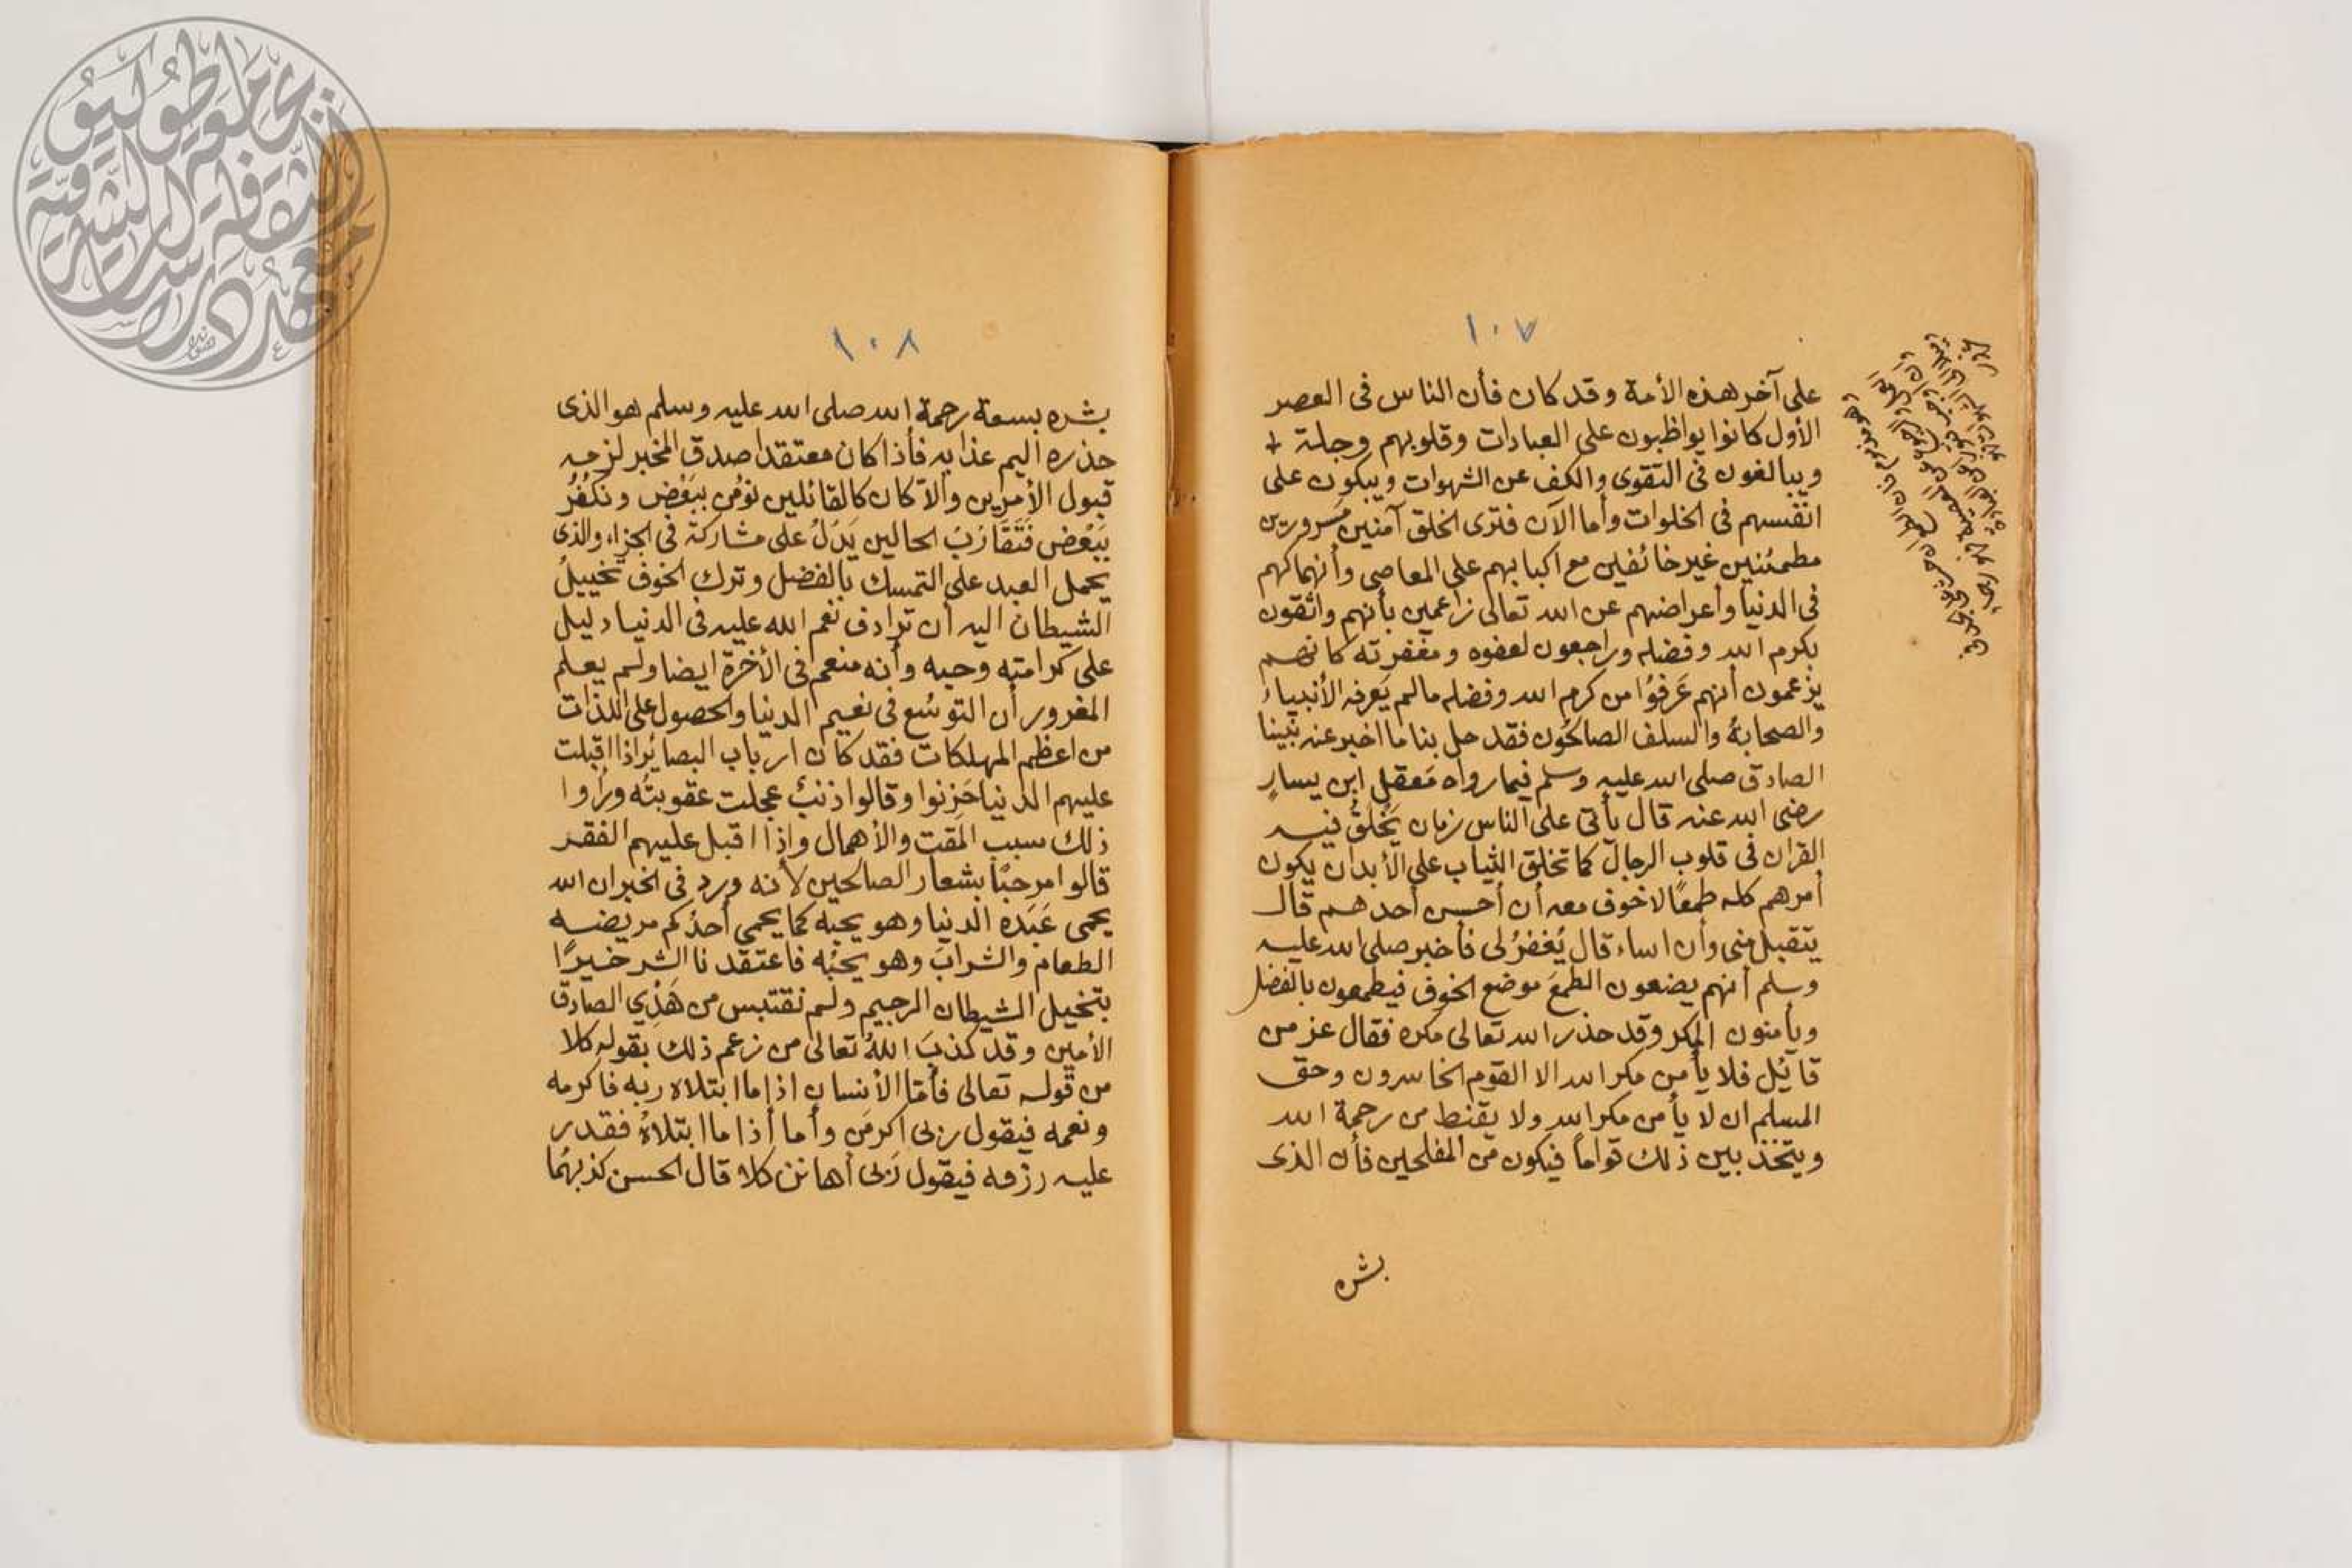 ١٠٧
على آخر هذه الأمة وقد كان فأن الناس فى العصر
الأول كانوا يواظبون على العبادات وقلوبهم وجلة
ويبالغون فى التقوى والكف عن الشهوات ويبكون على
انفسهم فى الخلوات وأما الآن فترى الخلق آمنين مسرورين
مطمئنين غير خائفين مع اكبابهم على المعاصى وأنهماكهم
فى الدنيا وأعراضهم عن الله تعالى زاعمين بأنهم واثقون
بكرم الله وفضله وراجعون لعفوه ومغفرته كانهم
يزعمون أنهم عَرفوُا من كرم الله وفضله مالم يَعرفه الأنبياء
والصحابةُ والسلف الصالحُون فقد حل بنا ما اخبر عنه نبينا
الصادق صلى الله عليه وسلم فيما رواه مَعقل ابن يسارٍ
رضى الله عنه قال يأتى على الناس زمان يَخْلَقُ فيه
القران فى قلوب الرجال كما تخلق الثياب على الأبدان يكون
أمرهم كله طمعًا لا خوف معه أن أحسن أحدهم قال
يتقبل منى وأن اساء قال يُغفرُ لى فأخبر صلى الله عليه
وسلم أنهم يضعون الطمعَ موضع الخوف فيطمعون بالفضل
ويأمنون المكر وقد حذر الله تعالى مكره فقال عز من
قائل فلا يأمن مكر الله الا القوم الخاسرون وحق
المسلم ان لا يأمن مكر الله ولا يقنط من رحمة الله
ويتخذ بين ذلك قواماً فيكون من المفلحين فأن الذى
بشره
١٠٨
بشره بسعة رحمة الله صلى الله عليه وسلم هو الذى
حذره اليم عذابه فأذا كان معتقدا صدق المخبر لزمه
قبول الأمرين والا كان كالقائلين نؤمن ببَعْض ونكفُرُ
ببَعْض فَتَقَارُبُ الحالين يَدَلُ على مشاركة فى الجزاء والذى
يحمل العبد على التمسك بالفضل وترك الخوف تخييلُ
الشيطان اليه أن ترادف نعم الله عليه فى الدنيا دليل
على كرامته وحبه وأنه منعم فى الأخرة ايضا ولم يعلم
المغرور أن التوسُع فى نعيم الدنيا والحصول على اللذات
من اعظم المهلكات فقد كان ارباب البصائر اذا اقبلت
عليهم الدنيا حَزِنوا وقالوا ذنبٌ عجلت عقوبتُه ورأوا
ذلك سبب المقت والأهمال وإذا اقبل عليهم الفقر
قالوا مرحبًا بشعار الصالحين لأنه ورد فى الخبر ان الله
يحمى عَبَده الدنيا وهو يحبه كما يحمى أحدُكم مريضه
الطعام والشرابَ وهو يحبُه فاعتقدنا الشر خيرًا
بتخيل الشيطان الرجيم ولم نقتبس من هَدْىِ الصادق
الأمين وقد كذبَ اللهُ تعالى من زعم ذلك بقوله كلا
من قوله تعالى فأمّا الأنسان اذا ما ابتلاه ربه فاكرمه
ونعمه فيقول ربى اكرمَن وأما أذا ما ابتلاهُ فقدر
عليه رزقه فيقول رَبى أهانن كلا قال الحسن كذبهُما
بجامعة طوكيو
معهد دراسات الثقافة الشرقية